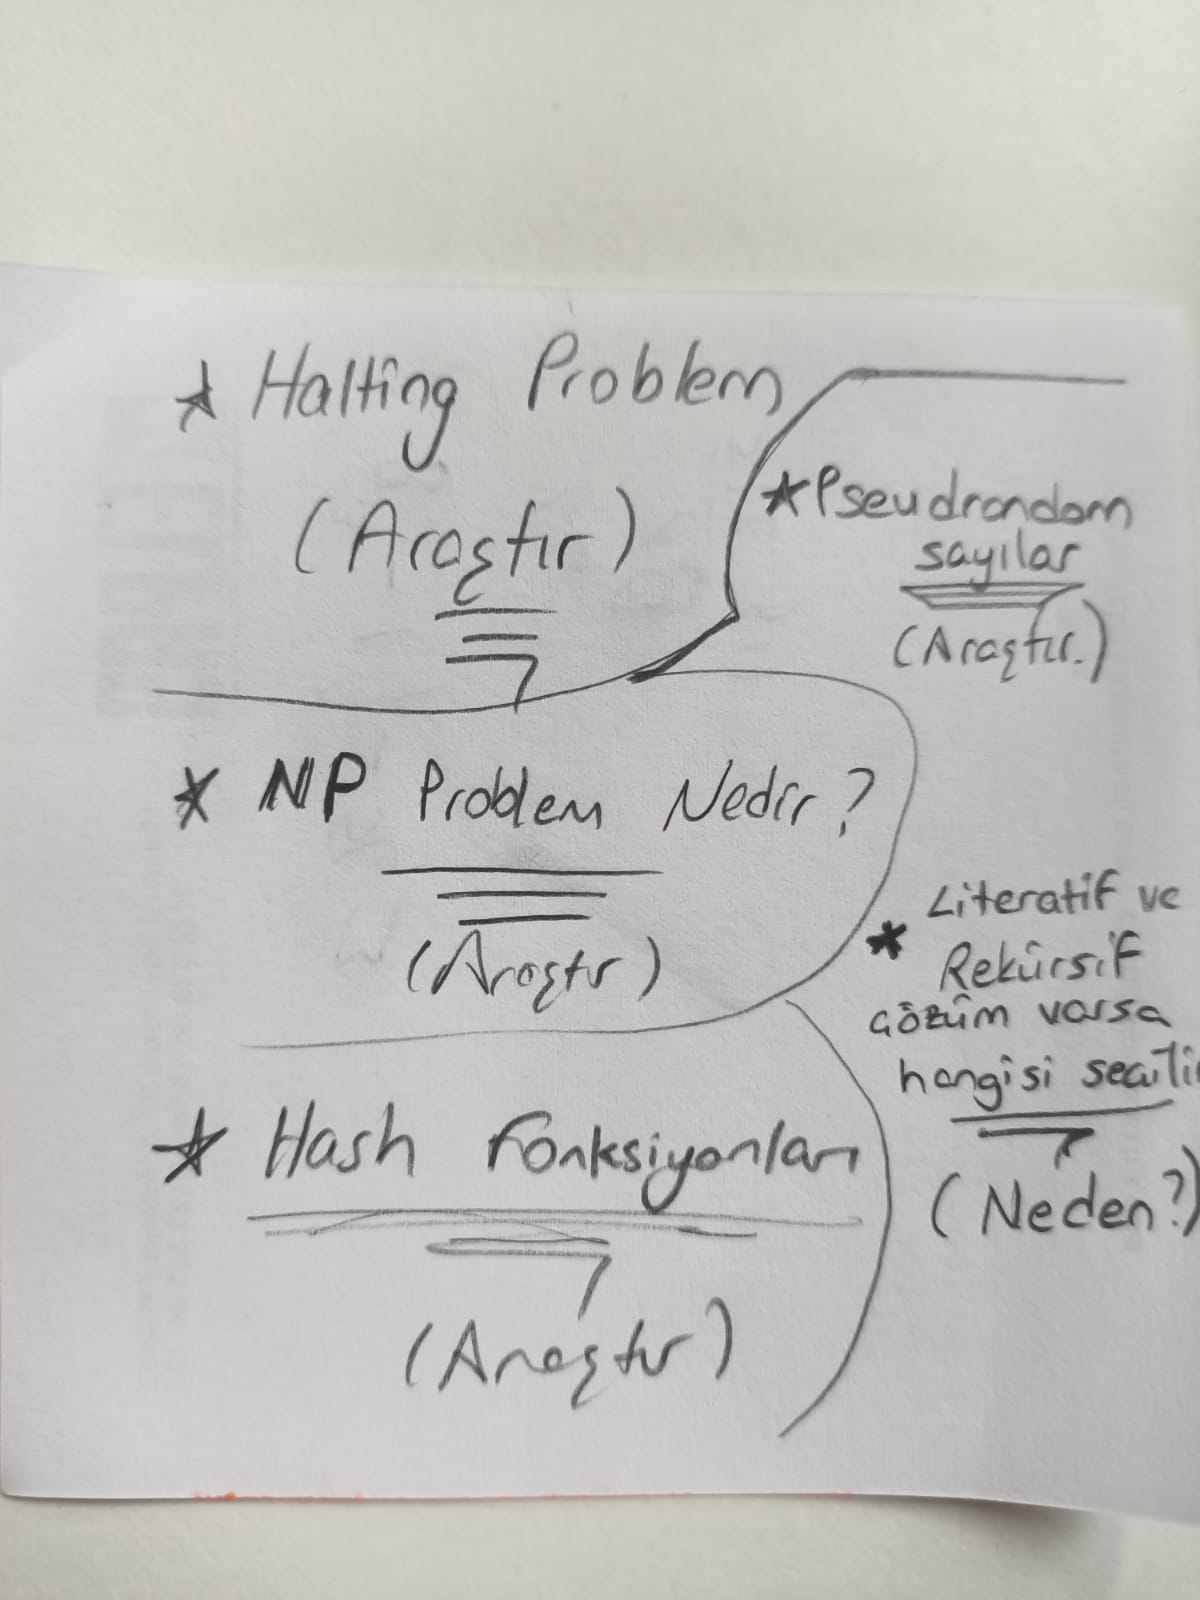 ★ Halting Problem
(Araştır)
★ Pseudrandom
sayılar
(Araştır.)
★ NP Problem Nedir?
(Araştır)
★ Literatif ve
Rekürsif
çözüm varsa
hangisi seçilir
(Neden?)
★ Hash Fonksiyonları
(Araştır)